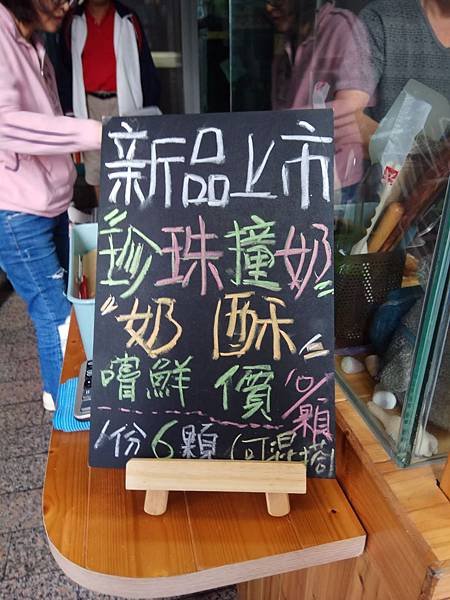 新品上市
"珍珠撞奶"
"奶酥"
嚐鮮價10/顆
1份6顆(可混搭)